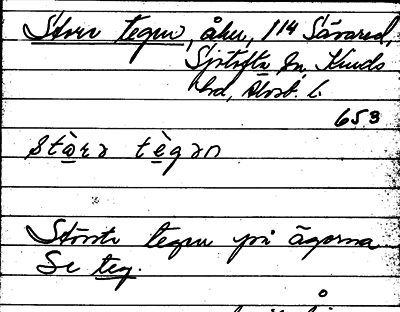 Stora tegen, åker, 1/4 Sävared,
Sjötofta sn, Kinds
hd, Älvsb. l.
653
stòra tègan
Största tegen på ägorna
Se teg.